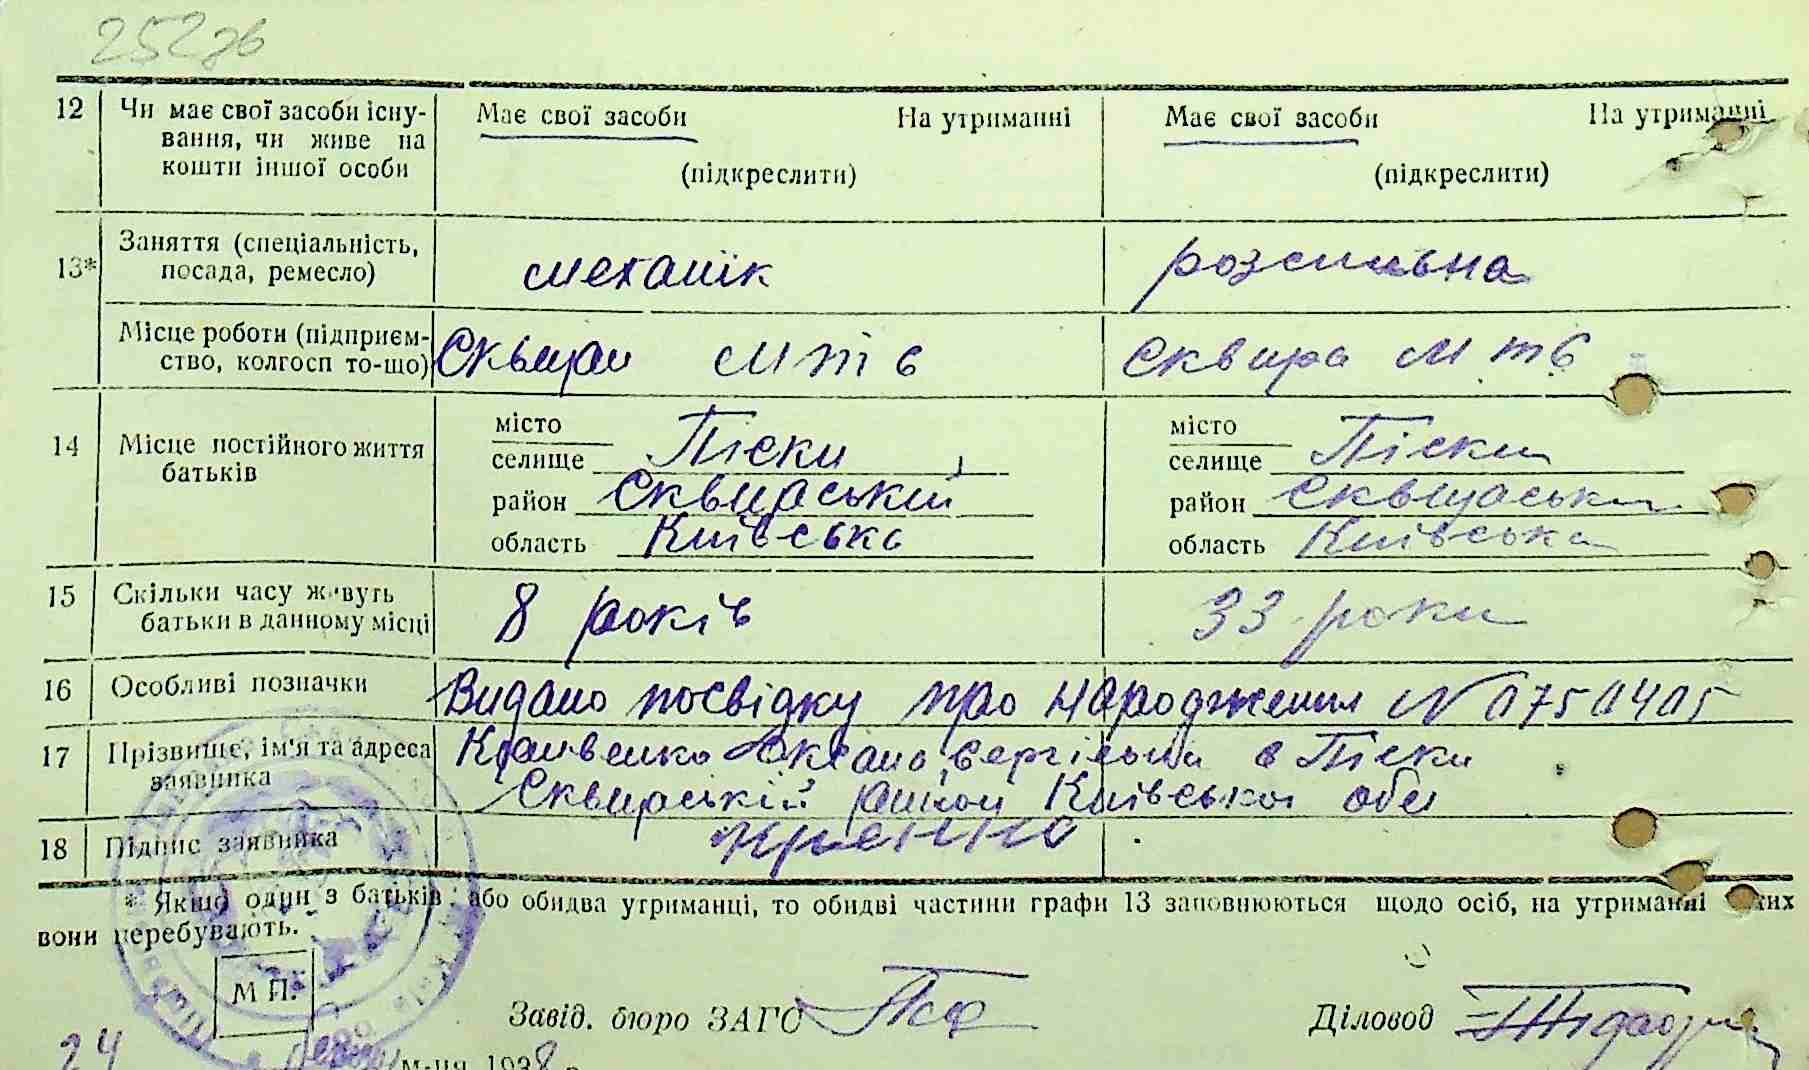 252зв
12 Чи має свої засоби існу-
вання, чи живе на
кошти іншої особи
Має свої засоби На утриманні
(підкреслити)
Має свої засоби На утриманні
(підкреслити)
13* Заняття (спеціальність,
посада, ремесло)
механік
розсильна
Місце роботи (підприєм-
ство, колгосп то-що)
Сквира МТС
Сквира МТС
14 Місце постійного життя
батьків
місто
селище Піски
район Сквирський
область Київська
місто
селище Піски
район Сквирський
область Київська
15 Скільки часу живуть
батьки в данному місці
8 років
33 роки
16 Особливі позначки
Видано посвідку про народження N 0750405
17 Прізвище, ім'я та адреса
заявника
Кравенко Оксана Сергіївна с Піски
Сквирській район Київської обл
18 Підпис заявника
* Якщо один з батьків або обидва утриманці, то обидві частини графи 13 заповнюються щодо осіб, на утриманні яких
вони перебувають.
М П.
Завід. бюро ЗАГС
Діловод
24 м-ця 1938 р.